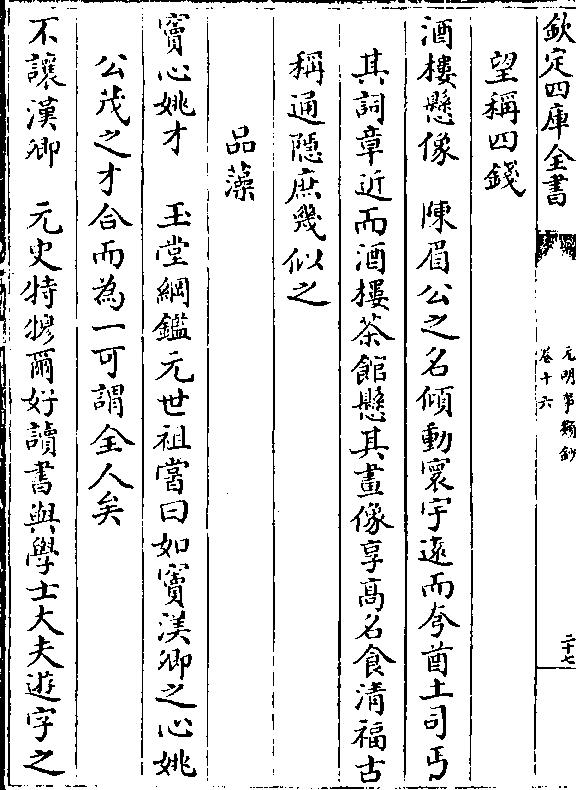 欽定四庫全書
元明事類鈔
卷十六
二十七
望稱四錢
酒樓懸像　陳眉公之名傾動寰宇遠而夸酋土司丐
其詞章近而酒樓茶館懸其畫像享高名食清福古
稱通隱庶幾似之
品藻
竇心姚才　玉堂綱鑑元世祖嘗曰如竇漢卿之心姚
公茂之才合而為一可謂全人矣
不讓漢卿　元史特穆爾好讀書與學士大夫遊字之